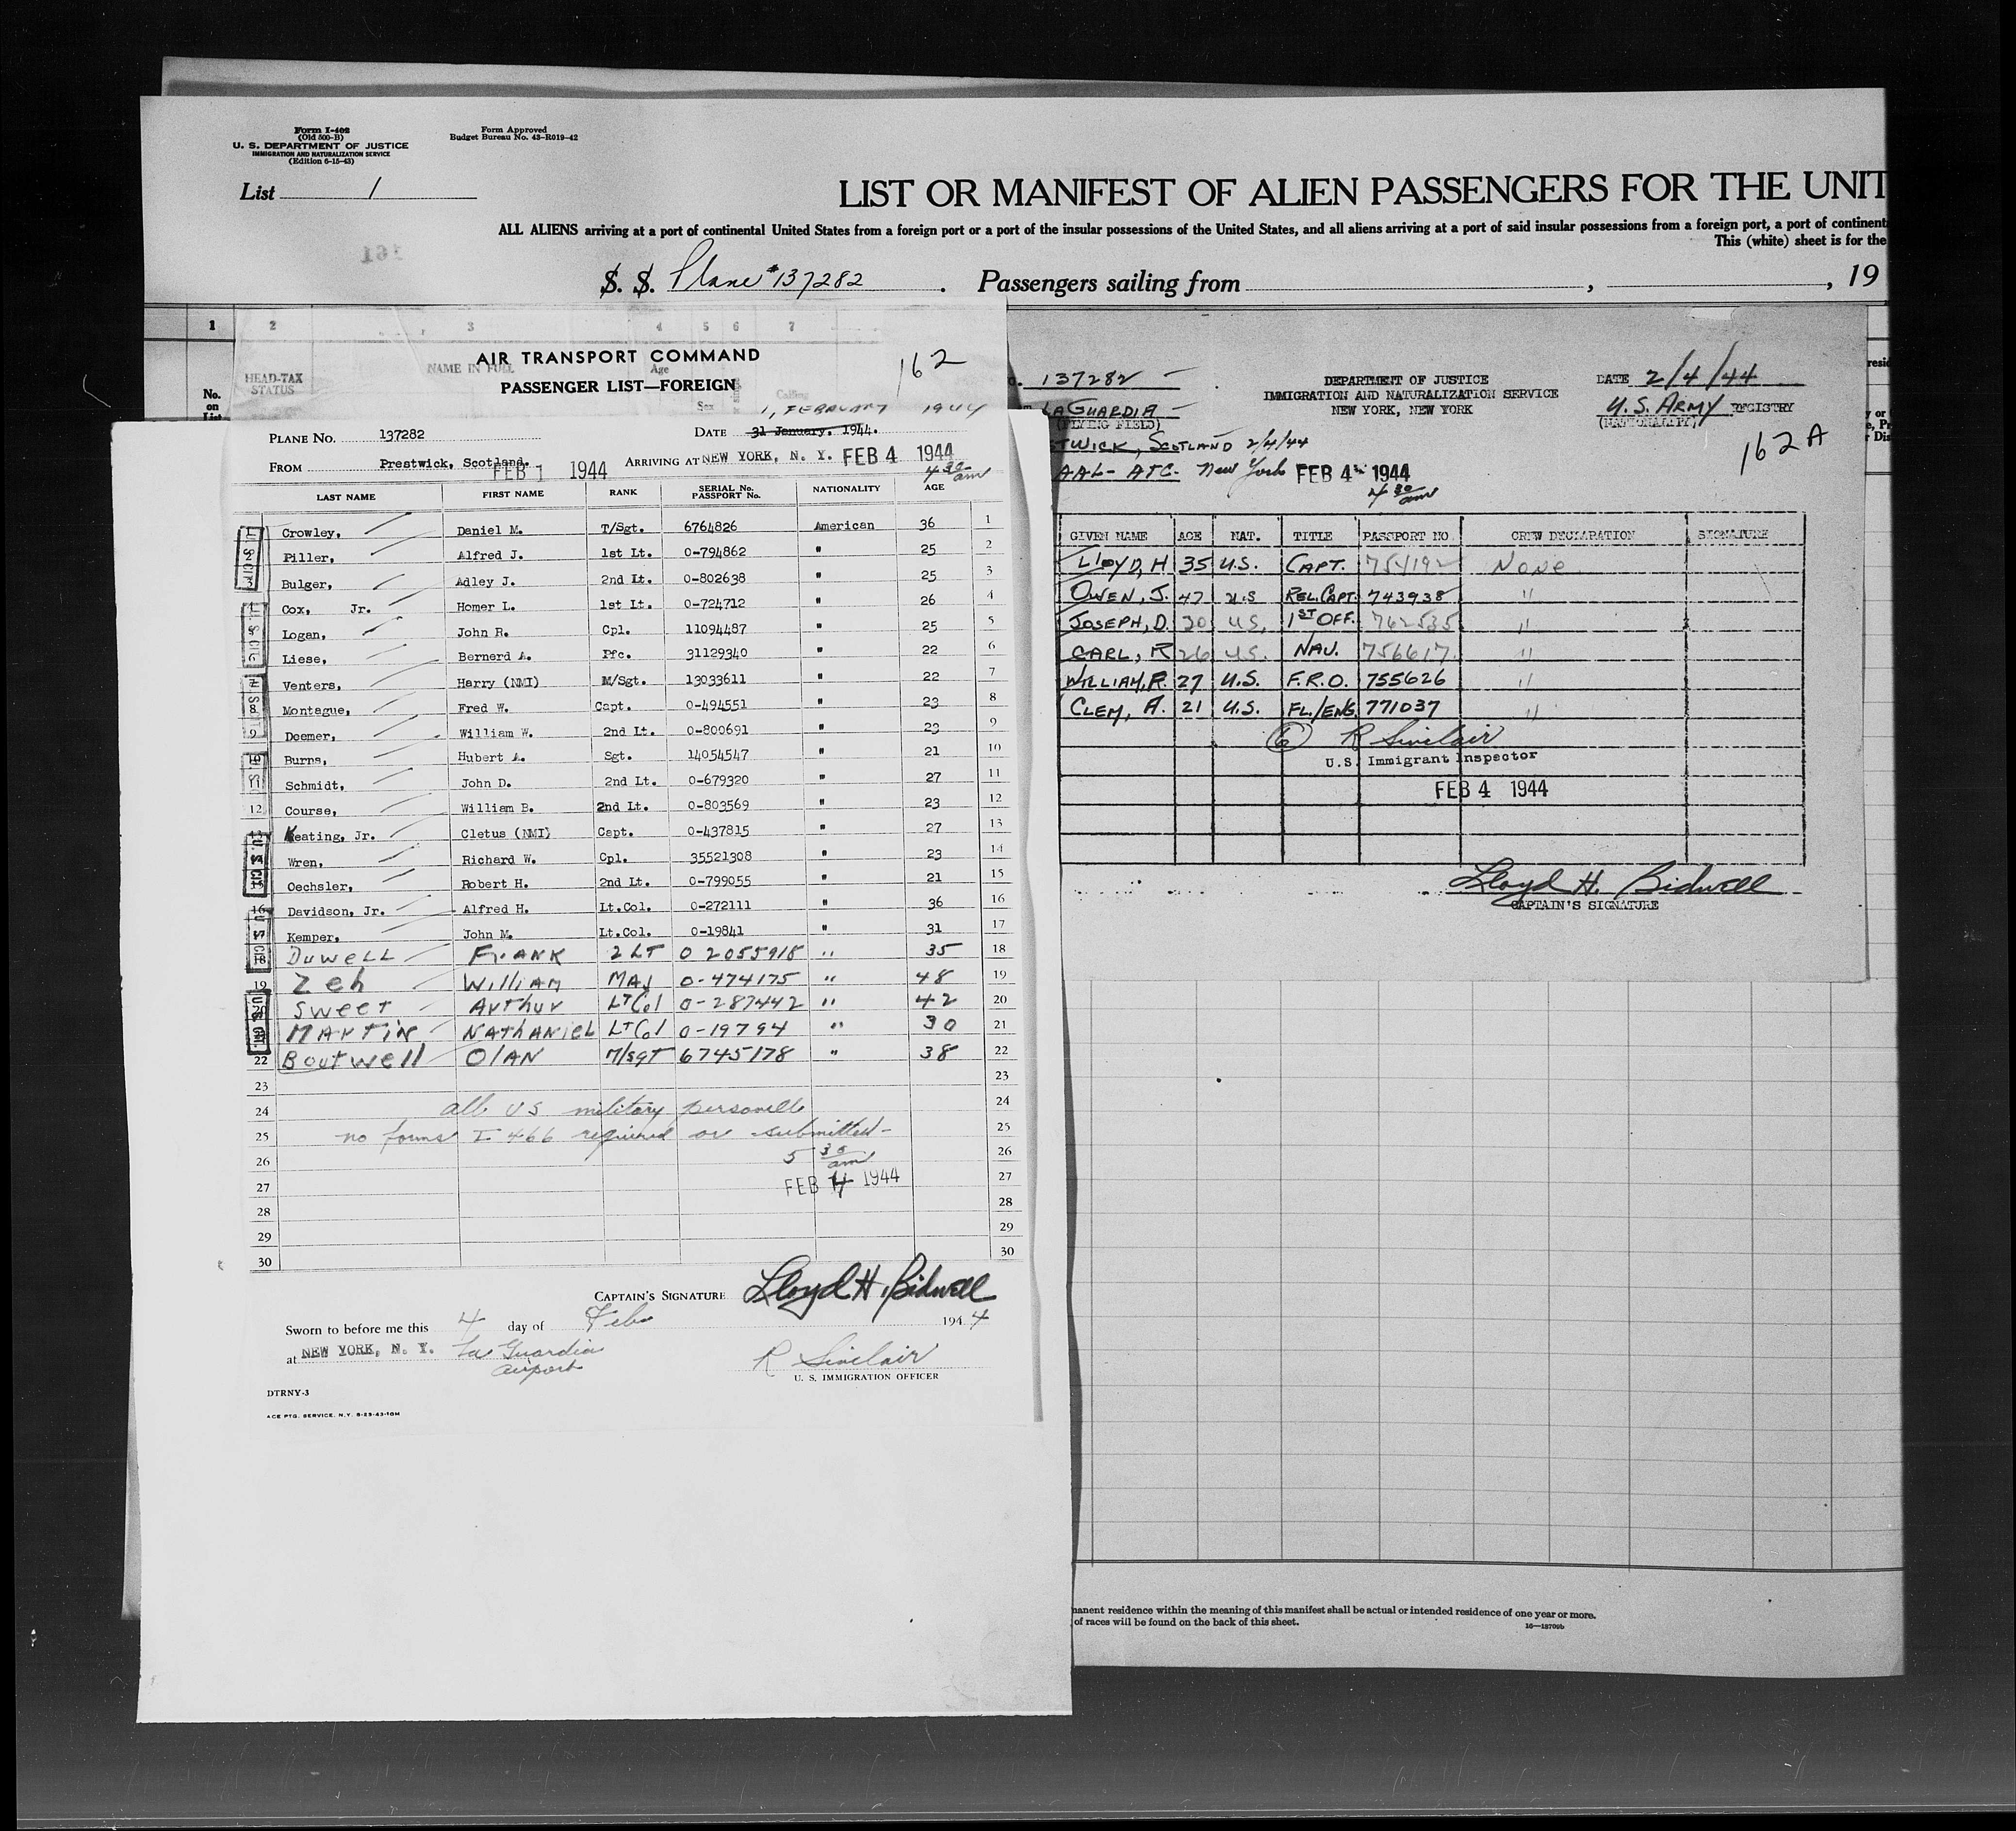 Form I-402
(Old 500-B)
U. S. DEPARTMENT OF JUSTICE
IMMIGRATION AND NATURALIZATION SERVICE
(Edition 6-15-43)
Form Approved
Budget Bureau No. 43-R019-42
List 1
LIST OR MANIFEST OF ALIEN PASSENGERS FOR THE UNIT
ALL ALIENS arriving at a port of continental United States from a foreign port or a port of the insular possessions of the United States, and all aliens arriving at a port of said insular possessions from a foreign port, a port of continent
This (white) sheet is for the
161
S. S. Plane #137282 . Passengers sailing from , , 19
1 2 3 4 5 6 7
HEAD-TAX STATUS
NAME IN FULL
Age
Sex
Calling
No.
on
List
AIR TRANSPORT COMMAND
PASSENGER LIST—FOREIGN
162
1, FEBRUARY 1944
PLANE No. 137282 DATE 31 January. 1944.
FROM Prestwick, Scotland. FEB 1 1944 ARRIVING AT NEW YORK, N. Y. FEB 4 1944
4 30 am
LAST NAME FIRST NAME RANK SERIAL No. PASSPORT No. NATIONALITY AGE
Crowley, Daniel M. T/Sgt. 6764826 American 36 1
Piller, Alfred J. 1st Lt. 0-794862 " 25 2
Bulger, Adley J. 2nd Lt. 0-802638 " 25 3
Cox, Jr. Homer L. 1st Lt. 0-724712 " 26 4
Logan, John R. Cpl. 11094487 " 25 5
Liese, Bernerd A. Pfc. 31129340 " 22 6
Venters, Harry (NMI) M/Sgt. 13033611 " 22 7
8 Montague, Fred W. Capt. 0-494551 " 23 8
9 Deemer, William W. 2nd Lt. 0-800691 " 23 9
Burns, Hubert A. Sgt. 14054547 " 21 10
Schmidt, John D. 2nd Lt. 0-679320 " 27 11
12 Course, William B. 2nd Lt. 0-803569 " 23 12
Keating, Jr. Cletus (NMI) Capt. 0-437815 " 27 13
Wren, Richard W. Cpl. 35521308 " 23 14
Oechsler, Robert H. 2nd Lt. 0-799055 " 21 15
16 Davidson, Jr. Alfred H. Lt.Col. 0-272111 " 36 16
Kemper, John M. Lt.Col. 0-19841 " 31 17
18 DUWELL FRANK 2 LT 0 2055918 " 35 18
19 Zeh William MAJ 0-474175 " 48 19
Sweet Arthur LT Col 0-287442 " 42 20
MARTIN NATHANIEL LT Col 0-19794 " 30 21
22 Boutwell OLAN M/SGT 6745178 " 38 22
23 23
24 all US military personelle 24
25 no forms I 466 required or submitted- 25
26 5 30 am 26
27 FEB 4 1944 27
28 28
29 29
30 30
CAPTAIN'S SIGNATURE Lloyd H. Bidwell
Sworn to before me this 4 day of Feb 194.4
at NEW YORK, N. Y. La Guardia airport
R Sinclair
U. S. IMMIGRATION OFFICER
DTRNY-3
ACE PTG. SERVICE, N.Y. 8-25-43-10M
137282
DEPARTMENT OF JUSTICE
IMMIGRATION AND NATURALIZATION SERVICE
NEW YORK, NEW YORK
DATE 2/4/44
LAGUARDIA
(FLYING FIELD)
U.S. ARMY REGISTRY
(NATIONALITY)
STWICK, SCOTLAND 2/4/44
162A
AAL- ATC- New York FEB 4 1944
4 30 am
GIVEN NAME AGE NAT. TITLE PASSPORT NO CREW DECLARATION SIGNATURE
LLOYD, H 35 U.S. CAPT. 754192 None
OWEN, J. 47 U.S REL.CAPT. 743938 "
JOSEPH, D. 20 U.S. 1ST OFF. 762535 "
CARL, R 26 U.S. NAV. 756617 "
WILLIAM, R. 27 U.S. F.R.O. 755626 "
CLEM, A. 21 U.S. FL/ENG. 771037 "
6 R Sinclair
U.S. Immigrant Inspector
FEB 4 1944
Lloyd H. Bidwell
CAPTAIN'S SIGNATURE
manent residence within the meaning of this manifest shall be actual or intended residence of one year or more.
of races will be found on the back of this sheet.
16—18709b